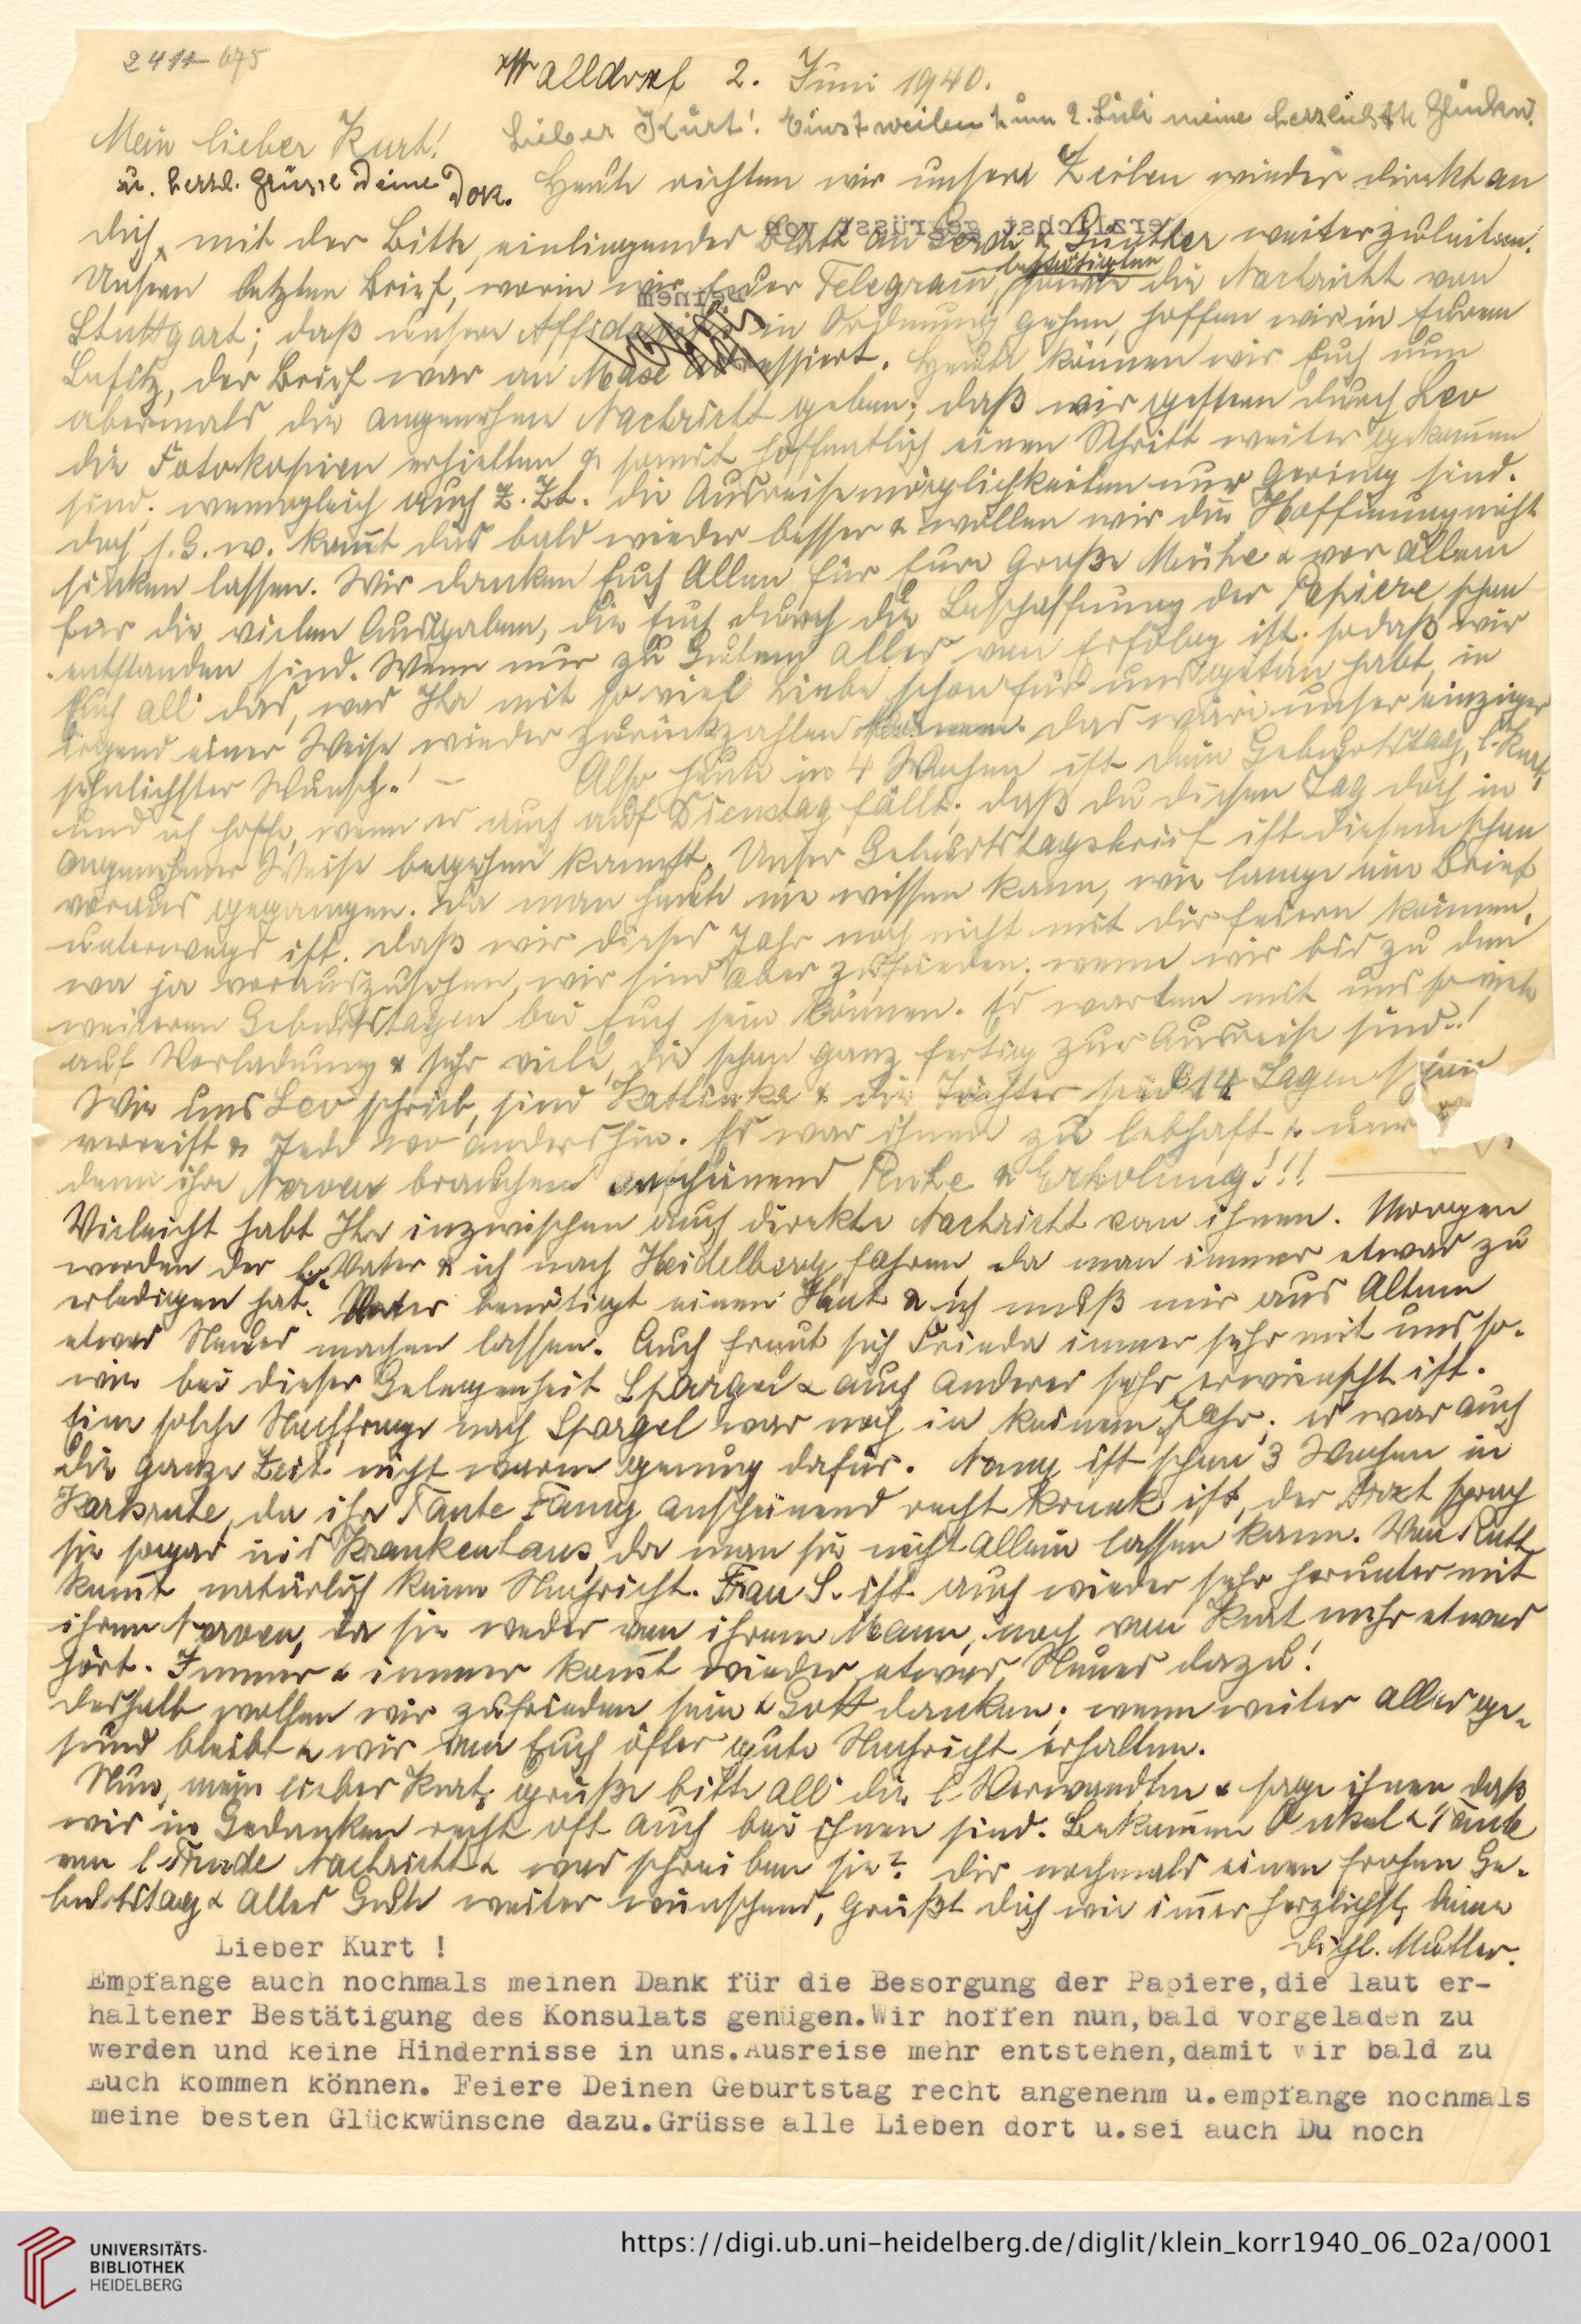 2411-675
Walldorf 2. Juni 1940.
Mein lieber Kurt! Lieber Kurt! Einstweilen zum 2. Juli meine herzlichste Glückw.
u. herzl. Grüsse Deine Dor. Heute richten wir unsere Zeilen wieder direkt an
dich, mit der Bitte, einliegender Blatt an & Günther weiterzuleiten.
herzlichst gegrüsst von
bestätigten
Unsern letzten Brief, worin wir Euer Telegramm, sowie die Nachricht von
Deinem
Stuttgart; daß unsere Affidavits in Ordnung gehen, hoffen wir in Eurem
Besitz, der Brief war an Max adressiert. Heute können wir Euch nun
abermals die angenehme Nachricht geben; daß wir gestern durch Leo
die Fotokopien erhielten & somit hoffentlich einen Schritt weiter gekommen
sind; wenngleich auch z. Zt. die Ausreisemöglichkeiten nur gering sind.
doch s. G. w. kommt das bald wieder besser & wollen wir die Hoffnung nicht
sinken lassen. Wir danken Euch Allen für Eure große Mühe & vor allem
für die vielen Ausgaben, die Euch durch die Beschaffung der Papiere schon
entstanden sind. Wenn nur zu Gutem alles von Erfolg ist. sodaß wir
Euch all das, was Ihr mit so viel Liebe schon für uns getan habt, in
irgend einer Weise wieder zurückzahlen können. das wäre unser einziger
sehnlichster Wunsch! – Also heute in 4 Wochen ist dein Geburtstag, l. Kurt,
und ich hoffe, wenn er auch auf Dienstag fällt; daß du diesen Tag doch in
angenehmer Weise begehen kannst. Unser Geburtstagsbrief ist diesem schon
voraus gegangen. da man heute nie wissen kann, wie lange ein Brief
unterwegs ist. daß wir dieses Jahr noch nicht mit dir feiern können,
war ja vorauszusehen, wir sind aber zufrieden; wenn wir bis zu den
weiteren Geburtstagen bei Euch sein können. Es warten mit uns so viele
auf Vorladung & sehr viele, die schon ganz fertig zur Ausreise sind.!
Wie uns Leo schrieb, sind Kathinka & die Töchter seit 14 Tagen
verreist & Jede wo anders hin. Es war ihnen zu lebhaft &
denn ihre Nerven brauchen anscheinend Ruhe & Erholung!!!
Vieleicht habt Ihr inzwischen auch direkte Nachricht von ihnen. Morgen
werden der l. Vater & ich nach Heidelberg fahren, da man immer etwas zu
erledigen hat. Vater benötigt einen Hut & ich muß mir aus Altem
etwas Neues machen lassen. Auch freut sich Frieda immer sehr mit uns, so-
wie bei dieser Gelegenheit Spargel & auch anderes sehr erwünscht ist.
Eine solche Nachfrage nach Spargel war noch in keinem Jahr; es war auch
die ganze Zeit nicht warm genug dafür. Nany ist schon 3 Wochen in
Karlsruhe, da ihr Tante Fanny anscheinend recht krank ist, der Arzt sprach
sie sogar ins Krankenhaus, da man sie nicht allein lassen kann. Von Ruth
kommt natürlich keine Nachricht. Frau S. ist auch wieder sehr herunter mit
ihren Nerven, da sie weder von ihrem Mann, noch von Kurt mehr etwas
hört. Immer & immer kommt wieder etwas Neues dazu!
Deshalb wollen wir zufrieden sein & Gott danken; wenn weiter alles ge-
sund bleibt & wir von Euch öfter gute Nachricht erhalten.
Nun, mein lieber Kurt, grüße bitte all die l. Verwandten & sage ihnen, daß
wir in Gedanken recht oft auch bei ihnen sind. Bekommen Onkel & Tante
von l. Trude Nachricht & was schreiben sie? Dir nochmals einen frohen Ge-
burtstag & alles Gute weiter wünschend, grüßt dich wie immer herzlichst, deine
dichl. Mutter.
Lieber Kurt !
Empfange auch nochmals meinen Dank für die Besorgung der Papiere,die laut er-
haltener Bestätigung des Konsulats genügen.Wir hoffen nun,bald vorgeladen zu
werden und keine Hindernisse in uns.Ausreise mehr entstehen,damit wir bald zu
Euch kommen können. Feiere Deinen Geburtstag recht angenehm u.empfange nochmals
meine besten Glückwünsche dazu.Grüsse alle Lieben dort u.sei auch Du noch
UNIVERSITÄTS-
BIBLIOTHEK
HEIDELBERG
https://digi.ub.uni-heidelberg.de/diglit/klein_korr1940_06_02a/0001